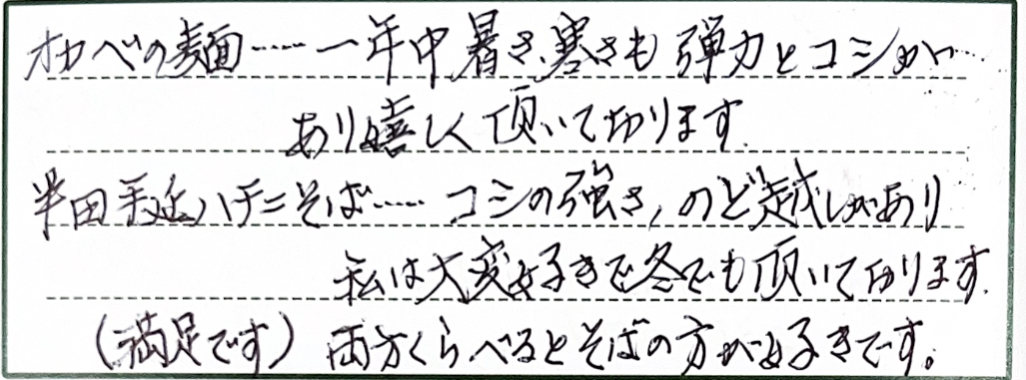 オカベの麺……一年中暑さ、寒さも弾力とコシが
あり嬉しく頂いて切ります
半田手延ハチニそば……コシの強さ、のど越しがあり
私は大変好きで冬でも頂いて切ります。
(満足です) 両方くらべるとそばの方が好きです。